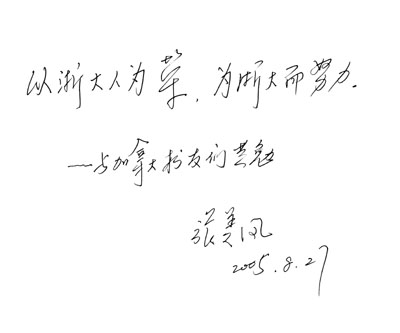 以浙大人为荣,为浙大而努力.
——与加拿大校友们共勉
张美凤
2005.8.27